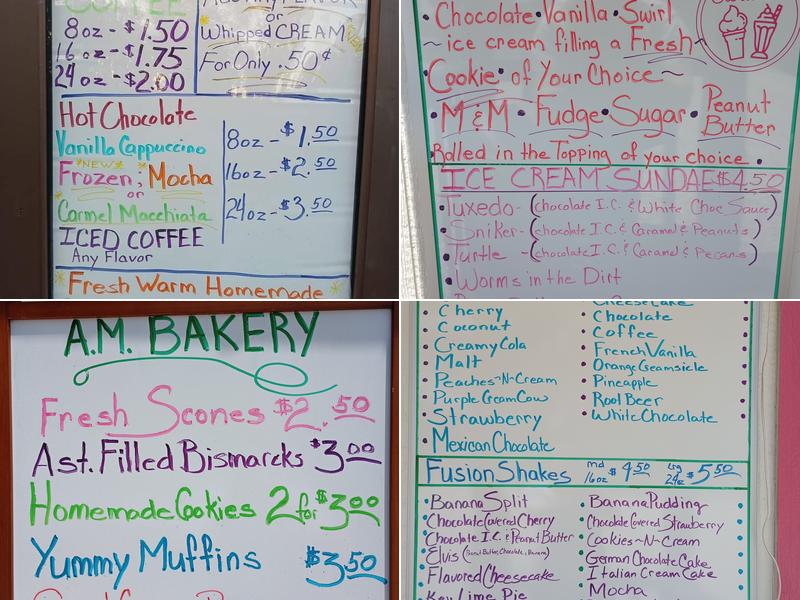 COFFEE
8oz - $1.50
16oz - $1.75
24oz - $2.00
Add Any FLAVOR
or
Whipped CREAM
For Only .50¢
Hot Chocolate
Vanilla Cappuccino
*NEW*
Frozen, Mocha
or
Carmel Macchiata
ICED COFFEE
Any Flavor
8oz - $1.50
16oz - $2.50
24oz - $3.50
*Fresh Warm Homemade*
• Chocolate • Vanilla • Swirl
~ ice cream filling a Fresh ~
Cookie of Your Choice ~
• M&M • Fudge • Sugar • Peanut Butter
Rolled in the Topping of your choice.
ICE CREAM SUNDAE $4.50
• Tuxedo - (chocolate I.C. & White Choc Sauce)
• Sniker - (chocolate I.C. & Caramel & Peanuts)
• Turtle - (chocolate I.C. & Caramel & Pecans)
• Worms in the Dirt
A.M. BAKERY
Fresh Scones $2.50
Ast. Filled Bismarcks $3.00
Homemade Cookies 2 for $3.00
Yummy Muffins $3.50
• Cherry
• Coconut
• Creamy Cola
• Malt
• Peaches-N-Cream
• Purple Cream Cow
• Strawberry
• Mexican Chocolate
Cheesecake
• Chocolate
• Coffee
• French Vanilla
• Orange Creamsicle
• Pineapple
• Root Beer
• White Chocolate
Fusion Shakes md 16oz $4.50 Lrg 24oz $5.50
• Banana Split
• Chocolate Covered Cherry
• Chocolate I.C. & Peanut Butter
• Elvis (Peanut Butter, Chocolate, Banana)
• Flavored Cheesecake
• Key Lime Pie
• Banana Pudding
• Chocolate Covered Strawberry
• Cookies-N-Cream
• German Chocolate Cake
• Italian Cream Cake
• Mocha